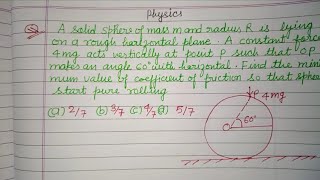 Physics
Q. A solid sphere of mass m and radius R is lying
on a rough horizontal plane. A constant force
4mg acts vertically at point P such that OP
makes an angle 60° with horizontal. Find the mini
mum value of coefficient of friction so that sphere
start pure rolling
(a) 2/7 (b) 3/7 (c) 4/7 (d) 5/7
P 4mg
O 60°